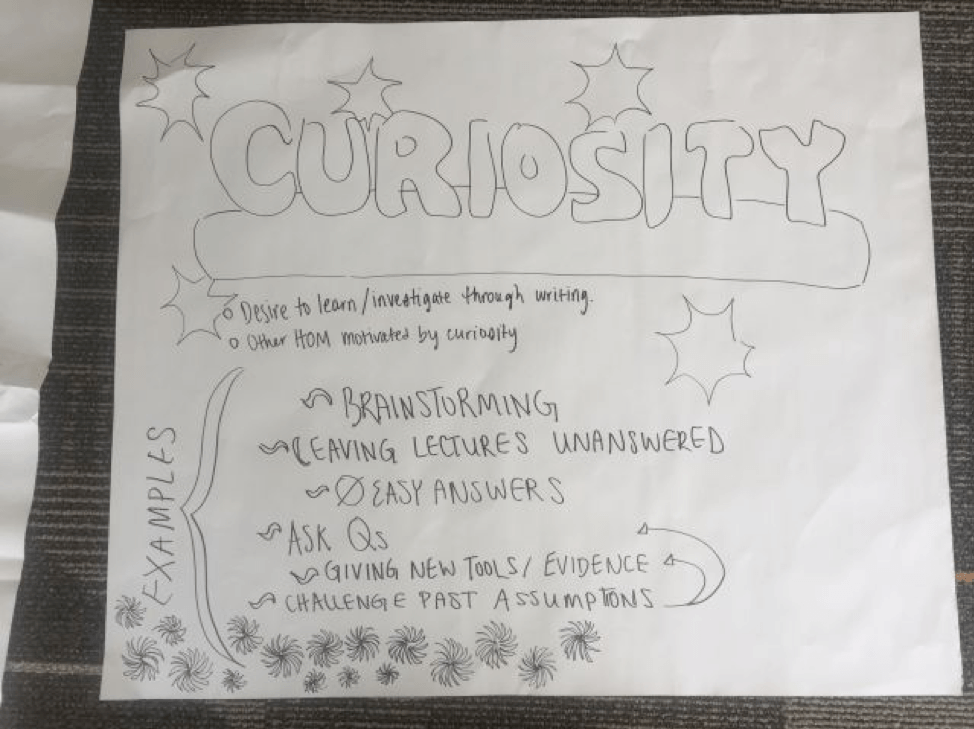 CURIOSITY
o Desire to learn/investigate through writing.
o Other HOM motivated by curiosity
EXAMPLES
~ BRAINSTORMING
~ LEAVING LECTURES UNANSWERED
~ Ø EASY ANSWERS
~ ASK Qs
~ GIVING NEW TOOLS/ EVIDENCE
~ CHALLENGE PAST ASSUMPTIONS